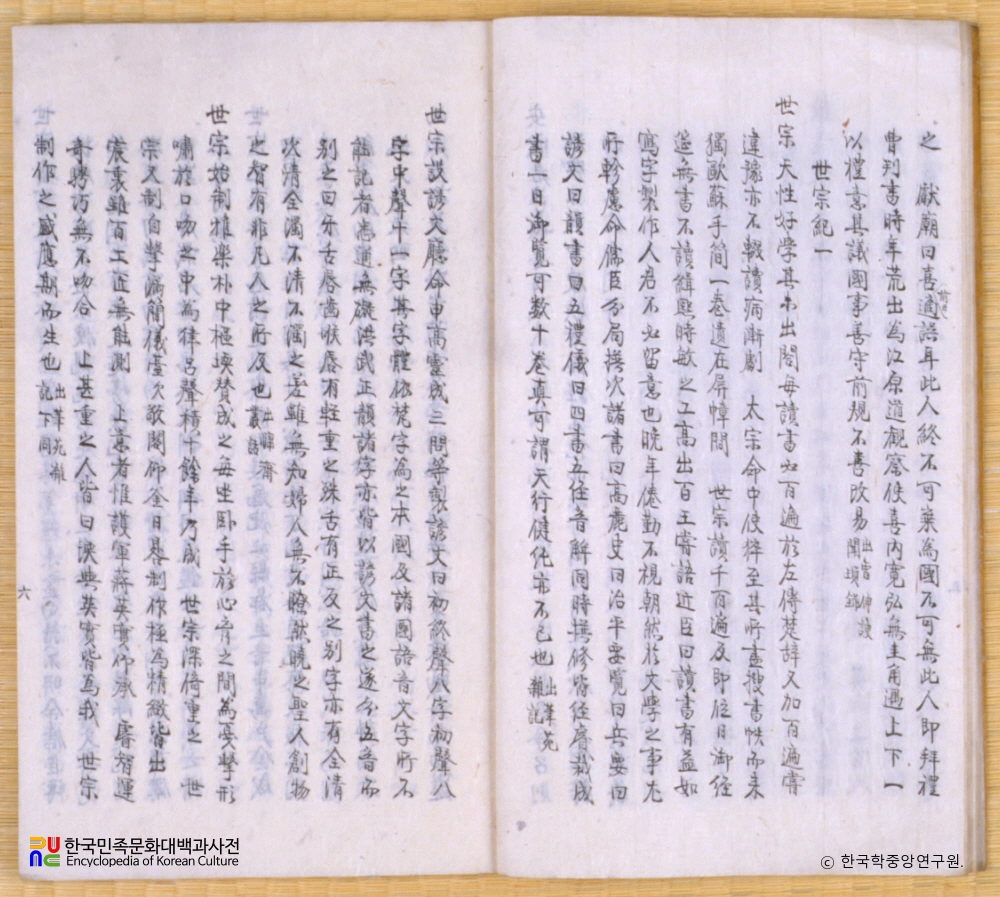 之 厭廟曰喜適諭也語耳此人終不可棄為國不可無此人即拜禮
曹判書時年荒出為江原道觀察使喜內寬弘無圭角遇上下一
以禮意其議國事善守前規不喜改易
世宗紀一
世宗天性好學其未出閤每讀書必百遍於左傳楚辭又加百遍嘗
違豫亦不輟讀病漸劇 太宗命中使猝至其所盡搜書帙而來
獨歐蘇手簡一卷遺在屏幛間 世宗讀千百遍及即位日御經
筵無書不讀緝熙時敏之工高出百王嘗語近臣曰讀書有益如
寫字製作人君不必留意也晚年倦勤不視朝然於文學之事尤
所軫慮命儒臣分局撰次諸書曰高麗史曰治平要覽曰兵要曰
諺文曰韻書曰五禮儀曰四書五經音解同時撰修皆經睿裁成
書一日御覽可數十卷真可謂天行健純亦不已也 出筆苑雜記
世宗設諺文廳命申高靈成三問等製諺文曰初終聲八字初聲八
字中聲十一字其字體依梵字為之本國及諸國語音文字所不
能記者悉通無礙洪武正韻諸字亦皆以諺文書之遂分五音而
別之曰牙舌唇齒喉唇有輕重之殊舌有正反之別字亦有全清
次清全濁不清不濁之差雖無知婦人無不瞭然曉之聖人創物
之智有非凡人之所及也 出慵齋叢話
世宗始制雅樂朴中樞堧贊成之每坐卧手於心育之間為戛擊形
嘯於口吻之中為律呂聲積十餘年乃成 世宗深倚重之 世
宗又制自擊漏簡儀臺欽敬閣仰釜日晷制作極為精緻皆出
宸衷雖百工匠無能測 上意者惟護軍蔣英實仰承 睿智運
奇騁巧無不吻合 上甚重之人皆曰堧與英實皆為我 世宗
制作之盛應期而生也 出筆苑雜記下同
六
한국민족문화대백과사전
Encyclopedia of Korean Culture
© 한국학중앙연구원.